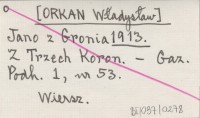 [ORKAN Władysław]
Jano z Gronia 1913.
Z Trzech Koron. - Gaz.
Podh. 1, nr 53.
Wiersz.